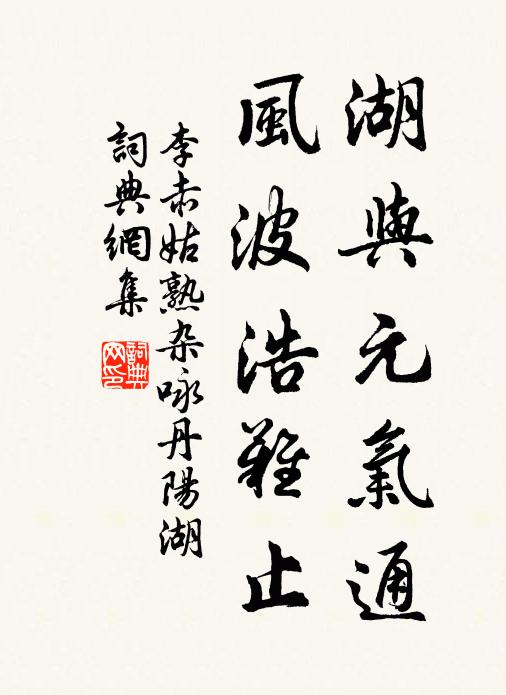 湖與元氣通
風波浩難止
李赤姑熟杂咏丹陽湖
詞典網集
詞典網印